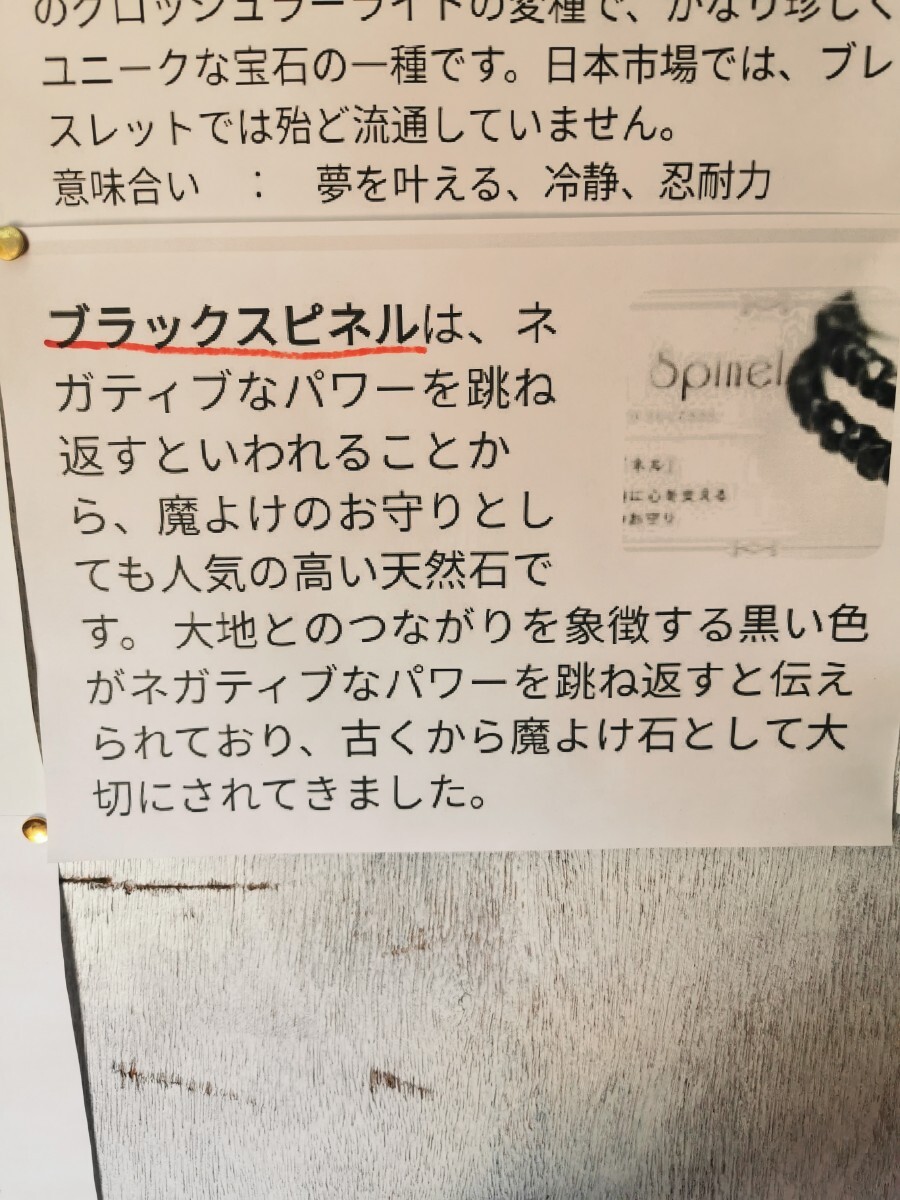 のグロッシュラーライトの変種で、かなり珍しく
ユニークな宝石の一種です。日本市場では、ブレ
スレットでは殆ど流通していません。
意味合い　：　夢を叶える、冷静、忍耐力
ブラックスピネルは、ネ
ガティブなパワーを跳ね
返すといわれることか
ら、魔よけのお守りとし
ても人気の高い天然石で
す。 大地とのつながりを象徴する黒い色
がネガティブなパワーを跳ね返すと伝え
られており、古くから魔よけ石として大
切にされてきました。
Spinel
ネル」
に心を変える
お守り